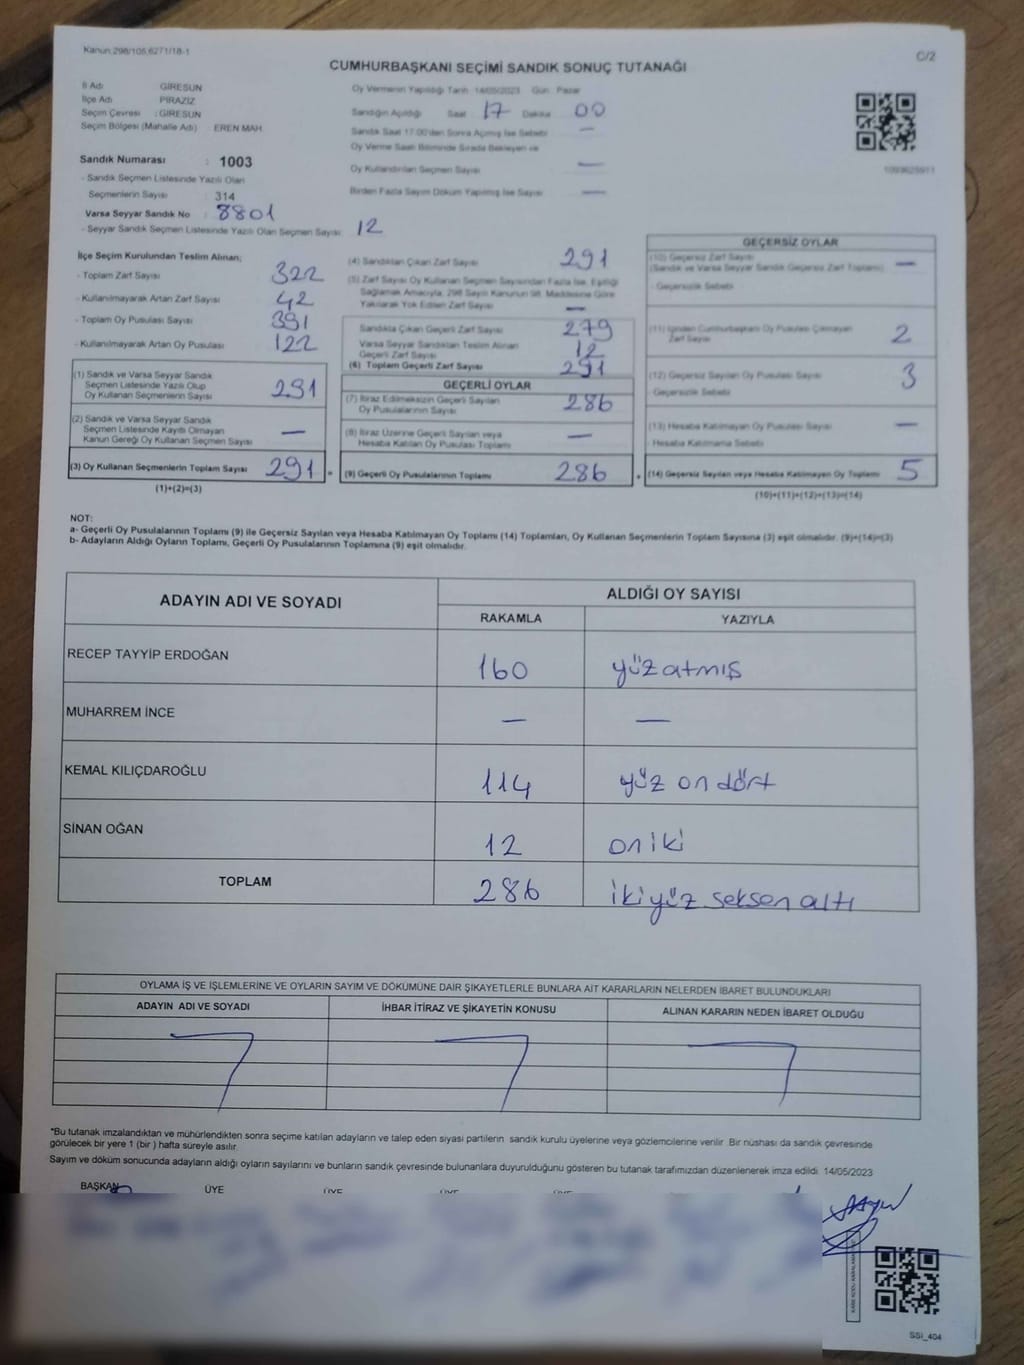 Kanun:298/105,6271/18-1
C/2
CUMHURBAŞKANI SEÇİMİ SANDIK SONUÇ TUTANAĞI
İl Adı GİRESUN
İlçe Adı PİRAZİZ
Seçim Çevresi : GİRESUN
Seçim Bölgesi (Mahalle Adı) EREN MAH.
Oy Vermenin Yapıldığı Tarih 14/05/2023 Gün Pazar
Sandığın Açıldığı Saat 17 Dakika 00
Sandık Saat 17:00'den Sonra Açılmış İse Sebebi —
Oy Verme Saati Bitiminde Sırada Bekleyen ve
Oy Kullandırılan Seçmen Sayısı —
Birden Fazla Sayım Döküm Yapılmış İse Sayısı —
Sandık Numarası : 1003
- Sandık Seçmen Listesinde Yazılı Olan
Seçmenlerin Sayısı : 314
Varsa Seyyar Sandık No : 8801
- Seyyar Sandık Seçmen Listesinde Yazılı Olan Seçmen Sayısı 12
İlçe Seçim Kurulundan Teslim Alınan;
- Toplam Zarf Sayısı 322
- Kullanılmayarak Artan Zarf Sayısı 42
- Toplam Oy Pusulası Sayısı 391
- Kullanılmayarak Artan Oy Pusulası 122
(1) Sandık ve Varsa Seyyar Sandık
Seçmen Listesinde Yazılı Olup
Oy Kullanan Seçmenlerin Sayısı 291
(2) Sandık ve Varsa Seyyar Sandık
Seçmen Listesinde Kayıtlı Olmayan
Kanun Gereği Oy Kullanan Seçmen Sayısı —
(3) Oy Kullanan Seçmenlerin Toplam Sayısı 291 =
(1)+(2)=(3)
(4) Sandıktan Çıkan Zarf Sayısı 291
(5) Zarf Sayısı Oy Kullanan Seçmen Sayısından Fazla İse, Eşitliği
Sağlamak Amacıyla, 298 Sayılı Kanunun 98. Maddesine Göre
Yakılarak Yok Edilen Zarf Sayısı —
Sandıkta Çıkan Geçerli Zarf Sayısı 279
Varsa Seyyar Sandıktan Teslim Alınan
Geçerli Zarf Sayısı 12
(6) Toplam Geçerli Zarf Sayısı 291
GEÇERLİ OYLAR
(7) İtiraz Edilmeksizin Geçerli Sayılan
Oy Pusulalarının Sayısı 286
(8) İtiraz Üzerine Geçerli Sayılan veya
Hesaba Katılan Oy Pusulası Toplamı —
(9) Geçerli Oy Pusulalarının Toplamı 286 +
GEÇERSİZ OYLAR
(10) Geçersiz Zarf Sayısı
(Sandık ve Varsa Seyyar Sandık Geçersiz Zarf Toplamı) —
- Geçersizlik Sebebi
(11) İçinden Cumhurbaşkanı Oy Pusulası Çıkmayan
Zarf Sayısı 2
(12) Geçersiz Sayılan Oy Pusulası Sayısı 3
- Geçersizlik Sebebi
(13) Hesaba Katılmayan Oy Pusulası Sayısı —
- Hesaba Katılmama Sebebi
(14) Geçersiz Sayılan veya Hesaba Katılmayan Oy Toplamı 5
(10)+(11)+(12)+(13)=(14)
NOT:
a- Geçerli Oy Pusulalarının Toplamı (9) ile Geçersiz Sayılan veya Hesaba Katılmayan Oy Toplamı (14) Toplamları, Oy Kullanan Seçmenlerin Toplam Sayısına (3) eşit olmalıdır. (9)+(14)=(3)
b- Adayların Aldığı Oyların Toplamı, Geçerli Oy Pusulalarının Toplamına (9) eşit olmalıdır.
ADAYIN ADI VE SOYADI
ALDIĞI OY SAYISI
RAKAMLA YAZIYLA
RECEP TAYYİP ERDOĞAN 160 yüzatmış
MUHARREM İNCE — —
KEMAL KILIÇDAROĞLU 114 yüz on dört
SİNAN OĞAN 12 oniki
TOPLAM 286 ikiyüz seksen altı
OYLAMA İŞ VE İŞLEMLERİNE VE OYLARIN SAYIM VE DÖKÜMÜNE DAİR ŞİKAYETLERLE BUNLARA AİT KARARLARIN NELERDEN İBARET BULUNDUKLARI
ADAYIN ADI VE SOYADI İHBAR İTİRAZ VE ŞİKAYETİN KONUSU ALINAN KARARIN NEDEN İBARET OLDUĞU
*Bu tutanak imzalandıktan ve mühürlendikten sonra seçime katılan adayların ve talep eden siyasi partilerin sandık kurulu üyelerine veya gözlemcilerine verilir. Bir nüshası da sandık çevresinde
görülecek bir yere 1 (bir) hafta süreyle asılır.
Sayım ve döküm sonucunda adayların aldığı oyların sayılarını ve bunların sandık çevresinde bulunanlara duyurulduğunu gösteren bu tutanak tarafımızdan düzenlenerek imza edildi. 14/05/2023
BAŞKAN ÜYE ÜYE ÜYE ÜYE
SSI_404